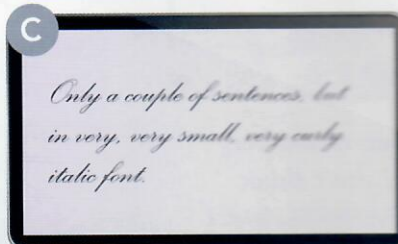 C
Only a couple of sentences, but
in very, very small, very curly
italic font.